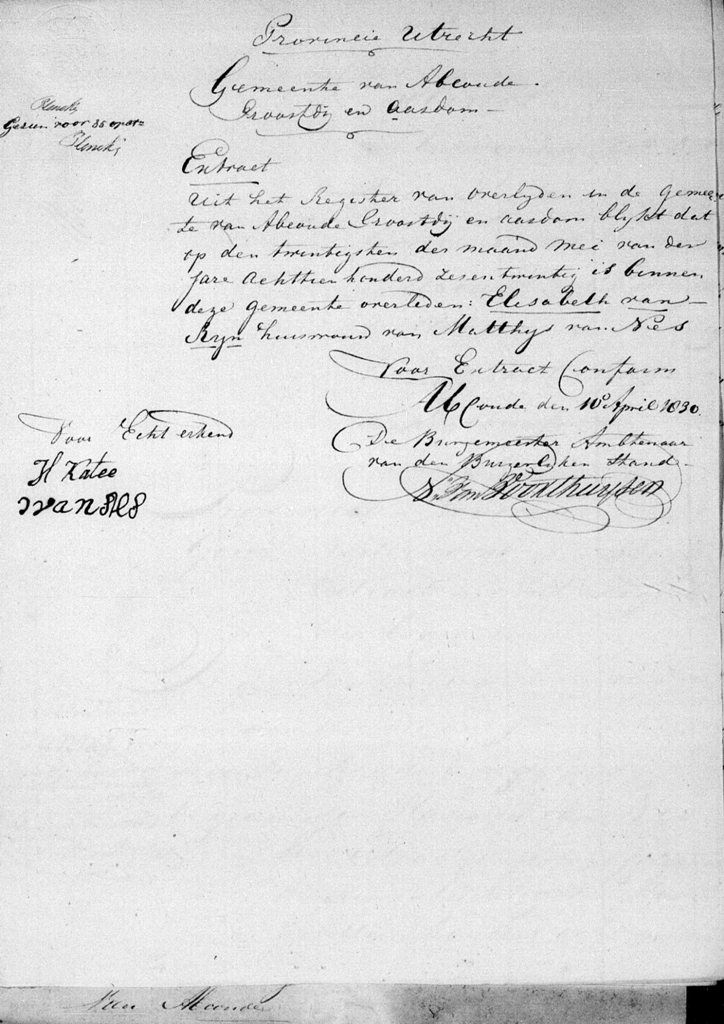 Provincie Utrecht
Gemeente van Abcoude
Proostdij en Aasdom
Gezien voor
Extract
Uit het Register van overlyden in de gemee-
te van Abcoude Proostdij en aasdom blijkt dat
op den twintigsten der maand Mei van den
jare achttien honderd zesentwintig is binnen
deze gemeente overleden: Elisabeth van
Ryn huisvrouw van Matthys van Nes
Voor Extract Conform
Abcoude den 10e April 1830
De Burgemeester Ambtenaar
van den Burgerlyken Stand
Voor Echt erkend
H Katee
J van NES
Van Abcoude